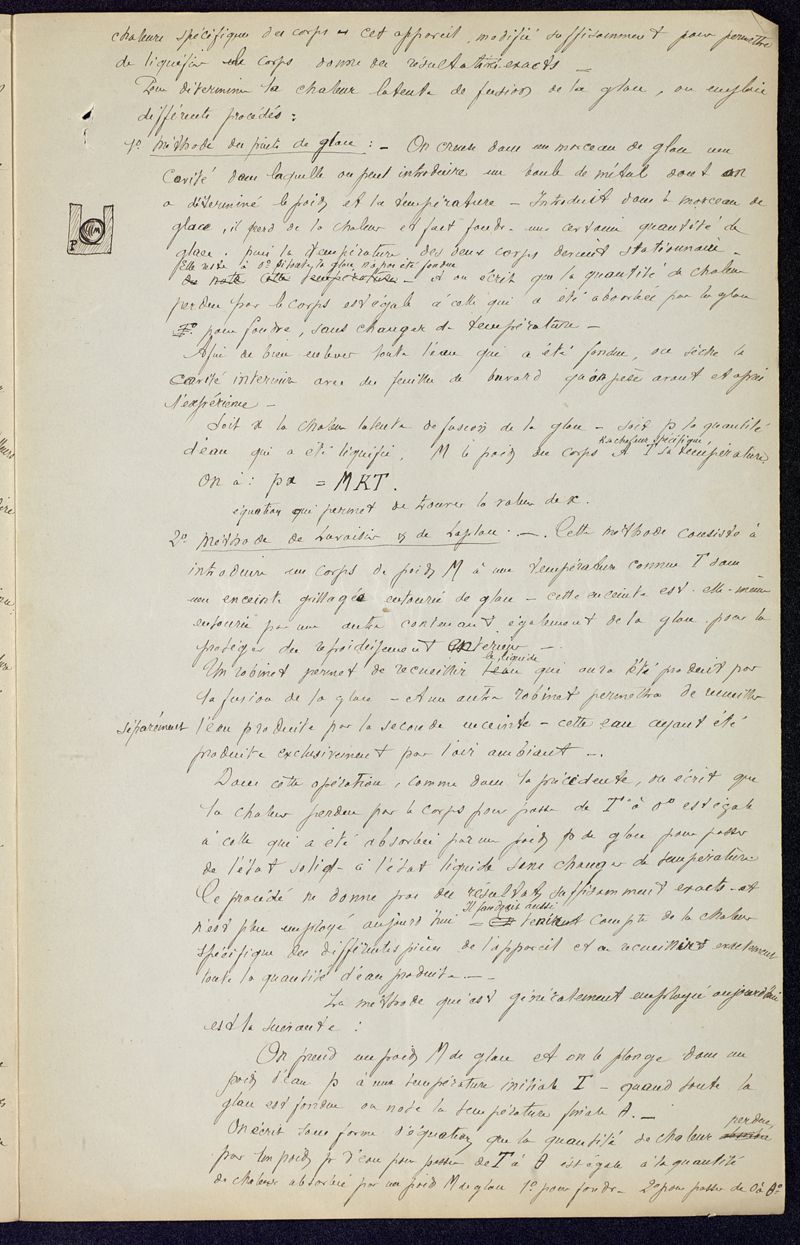 chaleurs spécifiques des corps et cet appareil, modifié suffisamment pour permettre
de liquéfier le corps donne des résultats très exacts —
Pour déterminer la chaleur latente de fusion de la glace, on emploie
différents procédés :
1º méthode du puits de glace : — On creuse dans un morceau de glace une
Cavité dans laquelle on peut introduire une boule de métal dont on
a déterminé le poids et la température — Introduit dans le morceau de
glace, il perd de la chaleur et fait fondre une certaine quantité de
glace. puis la température des deux corps devient stationnaire —
Elle reste à 0º si toute la glace n'a pas été fondue
de note cette température — et on écrit que la quantité de chaleur
perdue par le corps est égale à celle qui a été absorbée par la glace
1º pour fondre, sans changer de température —
Afin de bien enlever toute l'eau qui a été fondue, on sèche la
cavité intérieure avec des feuilles de buvard qu'on pèse avant et après
l'expérience —
Soit x la chaleur latente de fusion de la glace — soit p la quantité
K sa chaleur spécifique
d'eau qui a été liquéfiée, M le poids du corps & T sa température.
On a : px = MKT.
équation qui permet de trouver la valeur de x.
2º méthode de Lavoisier & de Laplace. —. Cette méthode consiste à
introduire un corps de poids M à une température connue T dans
une enceinte grillagée entourée de glace — cette enceinte est elle-même
entourée par une autre contenant également de la glace pour la
protéger du refroidissement extérieur —.
le liquide
Un robinet permet de recueillir l'eau qui aura été produit par
la fusion de la glace — et un autre robinet permettra de recueillir
séparément l'eau produite par la seconde enceinte — cette eau ayant été
produite exclusivement par l'air ambiant —.
Dans cette opération, comme dans la précédente, on écrit que
la chaleur perdue par le corps pour passer de Tº à 0º est égale
à celle qui a été absorbée par un poids p de glace pour passer
de l'état solide à l'état liquide sans changer de température
Ce procédé ne donne pas des résultats suffisamment exacts et
Il faudrait aussi
n'est plus employé aujourd'hui — tenir compte de la chaleur
spécifique des différentes pièces de l'appareil et en recueillir exactement
toute la quantité d'eau produite. — —
La méthode qui est généralement employée aujourd'hui
est la suivante :
On prend un poids M de glace et on le plonge dans un
poids d'eau p à une température initiale T — quand toute la
glace est fondue on note la température finale θ. —
perdue,
On écrit sous forme d'équation que la quantité de chaleur absorbée
par un poids p d'eau pour passer de T à θ est égale à la quantité
de chaleur absorbée par un poids M de glace 1º pour fondre — 2º pour passer de 0 à θº
P
M